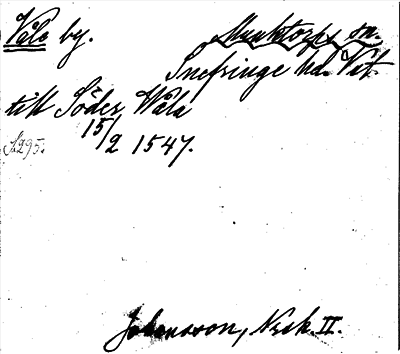 Våla by. Munktorps sn.
Snefringe hd. Vst.
till Söder Wåla
15/2 1547.
S. 295.
Johansson, Nsk. II.